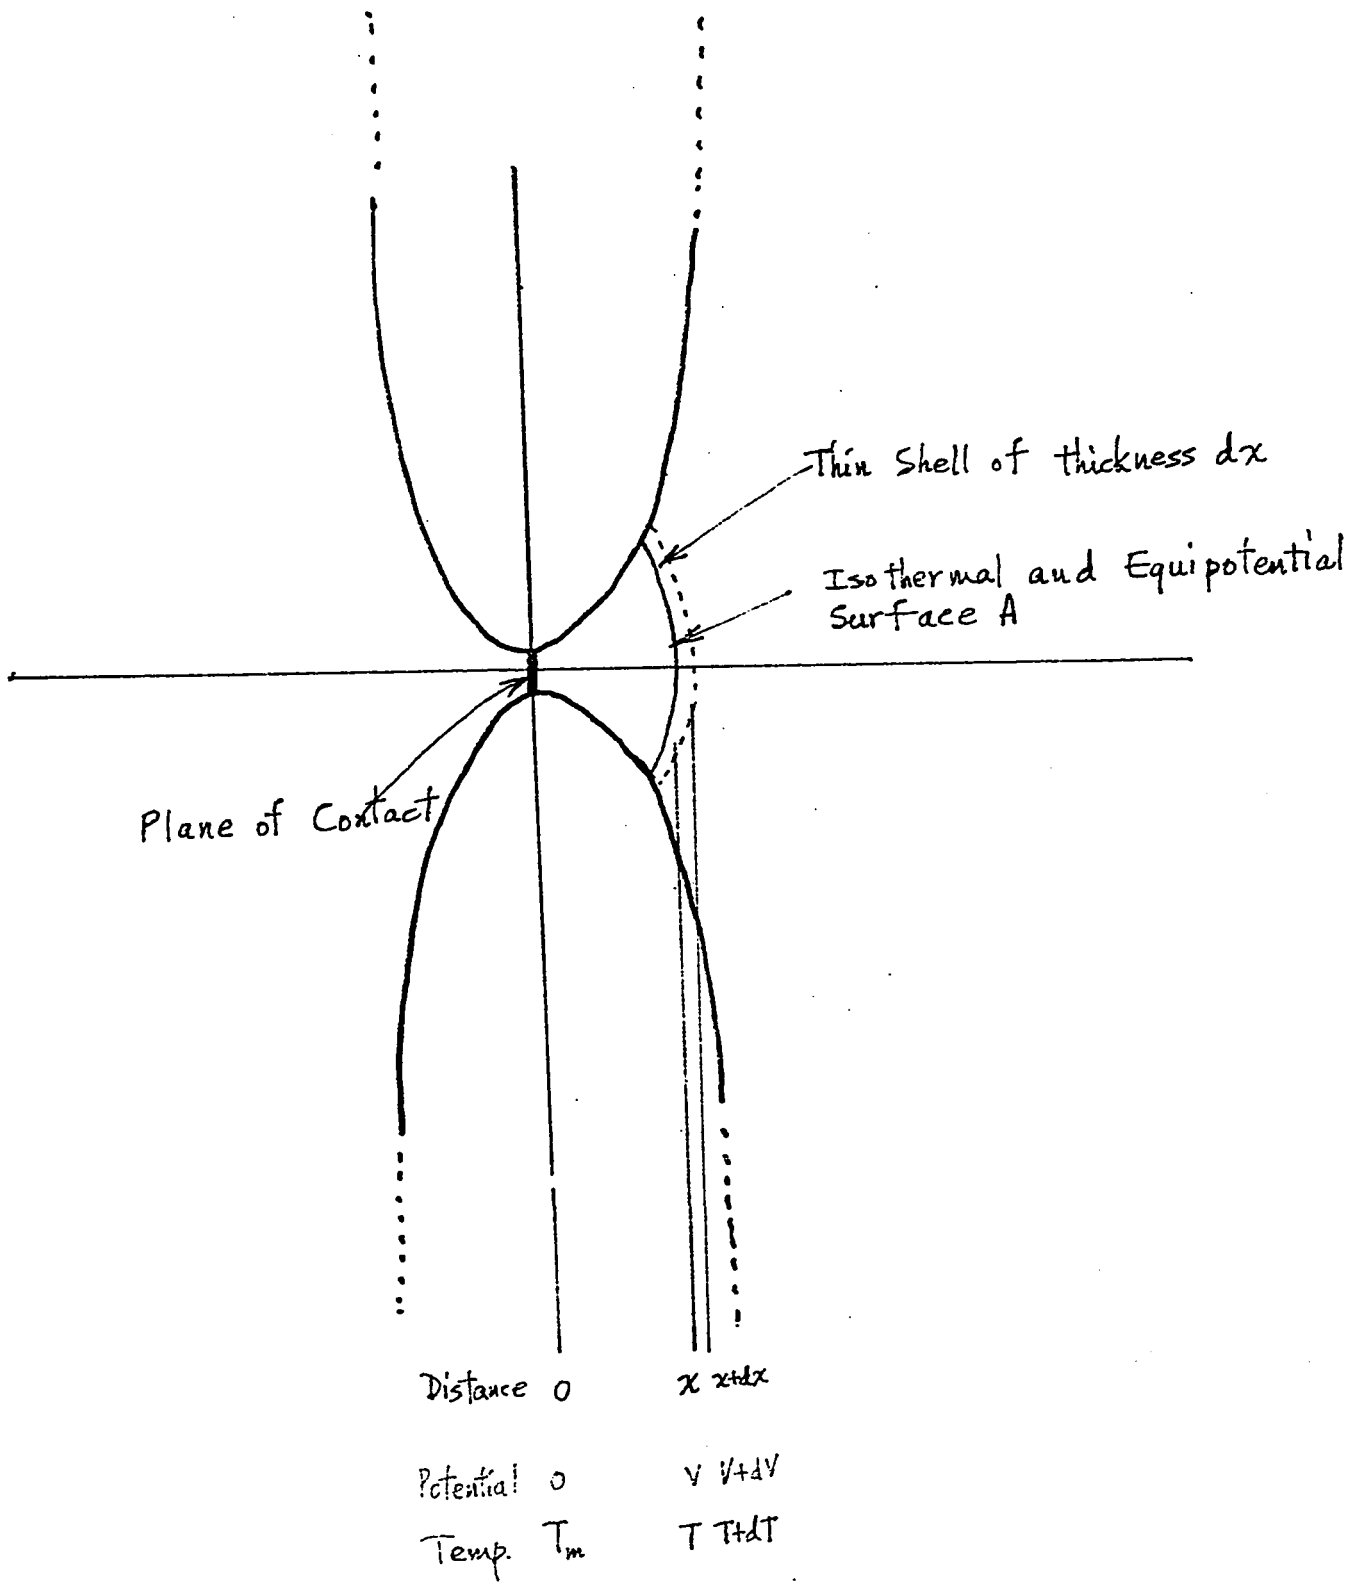 Thin Shell of thickness dx
Isothermal and Equipotential
Surface A
Plane of Contact
Distance 0 x x+dx
Potential 0 V V+dV
Temp. Tm T T+dT